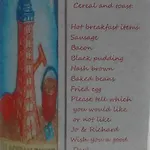 Cereal and toast
Hot breakfast items
Sausage
Bacon
Black pudding
Hash brown
Baked beans
Fried egg
Please tell which
you would like
or not like
Jo & Richard
Wish you a good